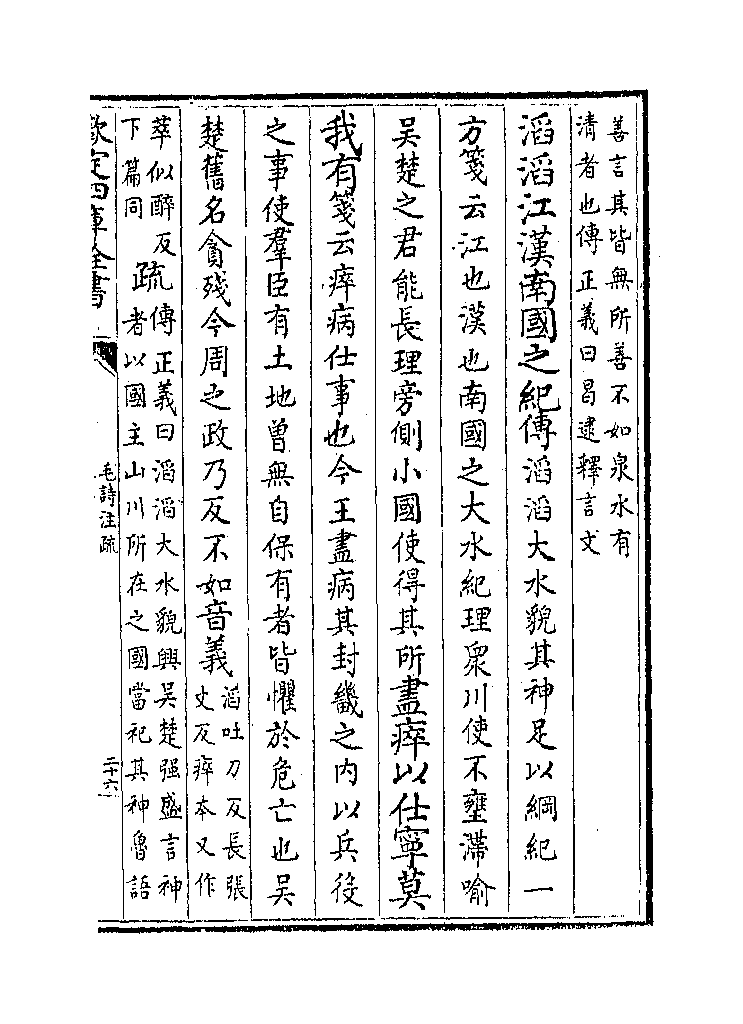 善言其皆無所善不如泉水有
清者也傳正義曰曷逮釋言文
滔滔江漢南國之紀傳滔滔大水貌其神足以綱紀一
方箋云江也漢也南國之大水紀理衆川使不壅滯喻
吳楚之君能長理旁側小國使得其所盡瘁以仕寧莫
我有箋云瘁病仕事也今王盡病其封畿之内以兵役
之事使羣臣有土地曾無自保有者皆懼於危亡也吳
楚舊名貪殘今周之政乃反不如音義滔吐刀反長張
丈反瘁本又作
萃似醉反
下篇同
疏傳正義曰滔滔大水貌興吳楚强盛言神
者以國主山川所在之國當祀其神魯語
欽定四庫全書
毛詩注疏
二十六